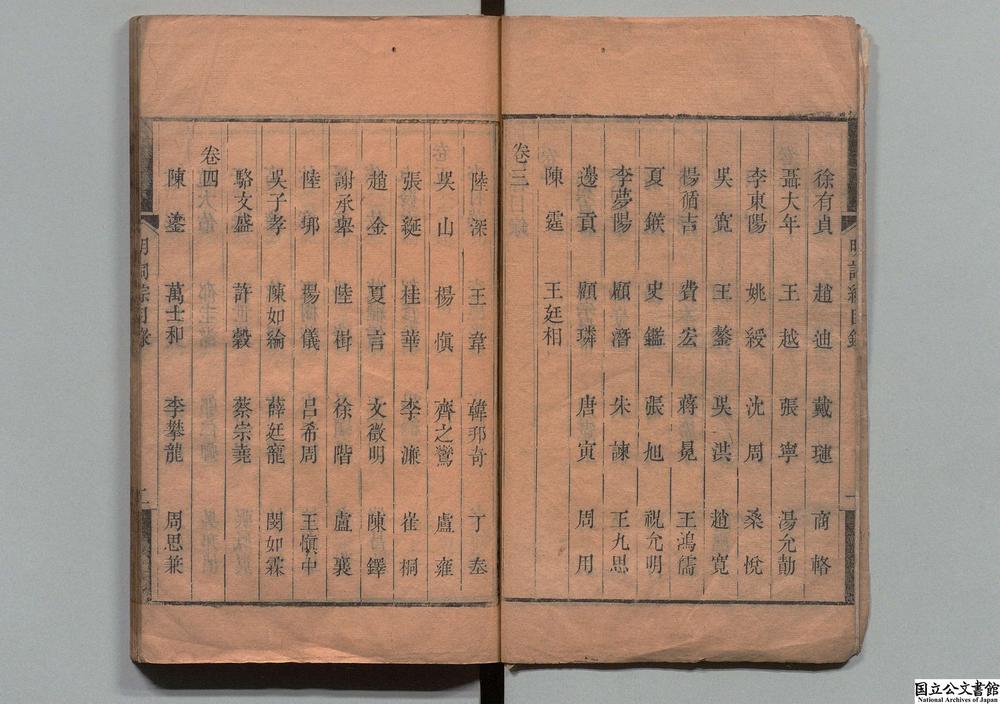 徐有貞 趙迪 戴璉 商輅
聶大年 王越 張寧 湯允勣
李東陽 姚綬 沈周 桑悅
吳寬 王鏊 吳洪 趙寬
楊循吉 費宏 蔣冕 王鴻儒
夏鍭 史鑑 張旭 祝允明
李夢陽 顧潛 朱諫 王九思
邊貢 顧璘 唐寅 周用
陳霆 王廷相
卷三
陸深 王韋 韓邦奇 丁奉
吳山 楊慎 齊之鸞 盧雍
張綖 桂華 李濂 崔桐
趙金 夏言 文徵明 陳鐸
謝承舉 陸楫 徐階 盧襄
陸埛 楊儀 呂希周 王慎中
吳子孝 陳如綸 薛廷寵 閔如霖
駱文盛 許 穀 蔡宗堯
卷四
陳鎏 萬士和 李攀龍 周思兼
明詞綜目錄
一
二
国立公文書館
National Archives of Japan